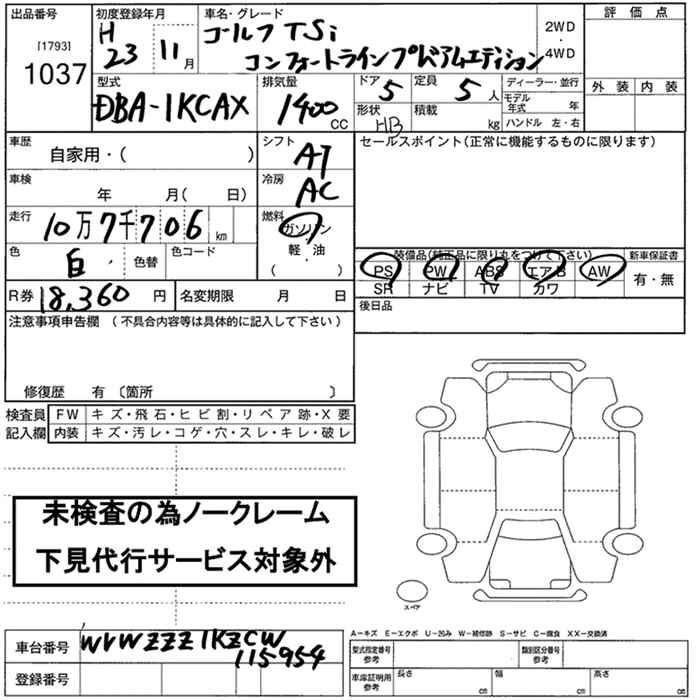 出品番号 初度登録年月 車名・グレード 評価点
[1793]
1037
H
23 11月
ゴルフ TSi
コンフォートラインプレミアムエディション
2WD
・
4WD
外装 内装
型式 排気量 ドア 定員 ディーラー・並行
DBA-1KCAX 1400 CC 5 5人
モデル年式 年
形状 HB 積載 kg ハンドル 左・右
車歴 自家用・( )
シフト AT
セールスポイント(正常に機能するものに限ります)
車検 年 月( 日)
冷房 AC
走行 10万7千706 km
燃料 ガソリン
軽・油
( )
色 白 色替 色コード
装備品(純正品に限り丸をつけて下さい) 新車保証書
PS PW ABS エアB AW 有・無
SR ナビ TV カワ
R券 18,360円 名変期限 月 日
後日品
注意事項申告欄 (不具合内容等は具体的に記入して下さい)
修復歴 有 〔箇所 〕
検査員 FW キズ・飛石・ヒビ割・リペア跡・X要
記入欄 内装 キズ・汚レ・コゲ・穴・スレ・キレ・破レ
未検査の為ノークレーム
下見代行サービス対象外
スペア
A-キズ E-エクボ U-凹み W-補修跡 S-サビ C-腐食 XX-交換済
車台番号 WVWZZZ1KZCW
115954
登録番号
型式指定番号
参考
類別区分番号
参考
車庫証明用
参考
長さ cm 幅 cm 高さ cm